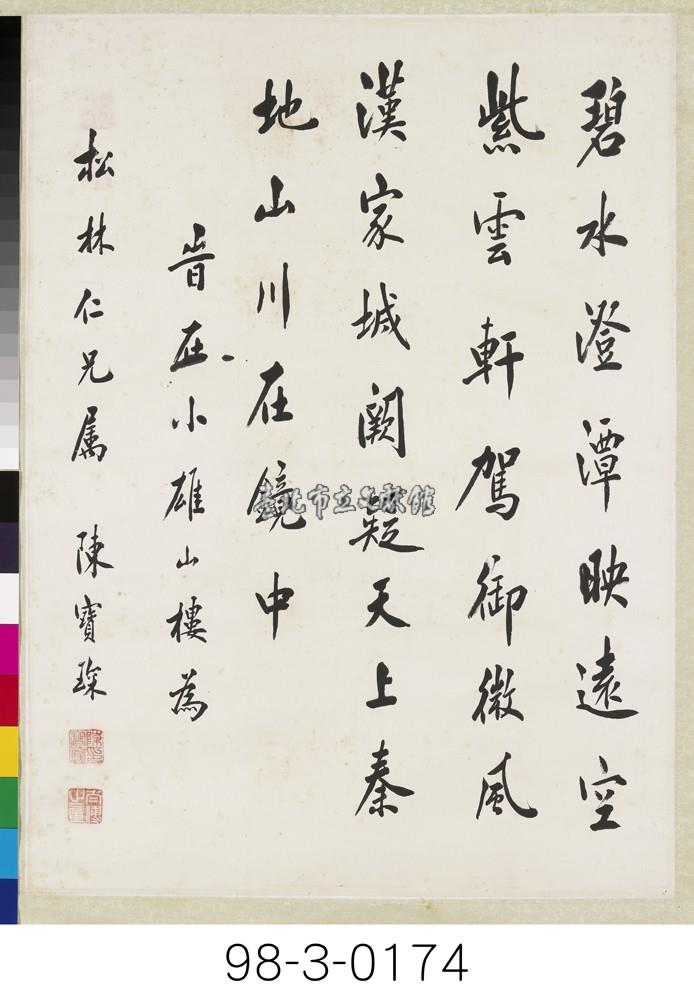 碧水澄潭映遠空
紫雲軒駕御微風
漢家城闕疑天上秦
地山川在鏡中
旹在小雄山樓為
松林仁兄属 陳寶琛
臺北市立文獻館
98-3-0174